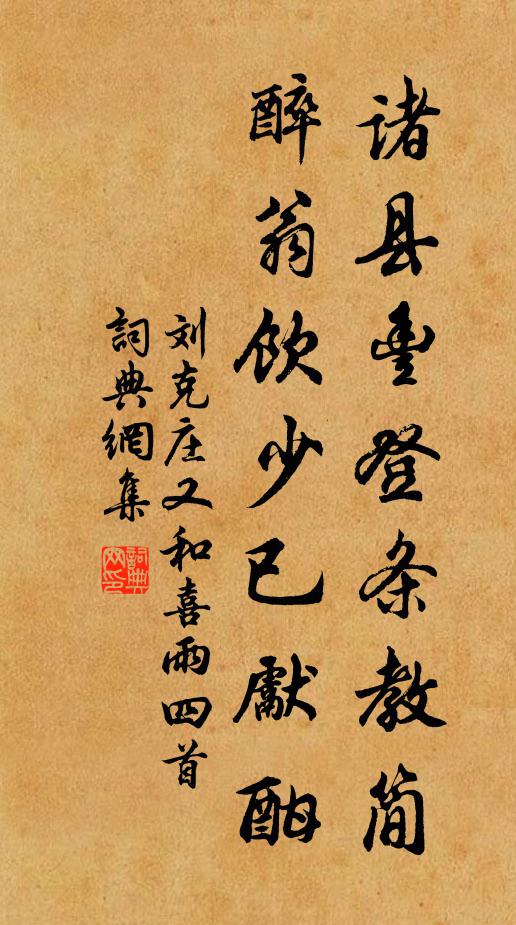 诸县豊登条教简
醉翁饮少已獻酣
刘克庄又和喜雨四首
詞典網集
詞典網印